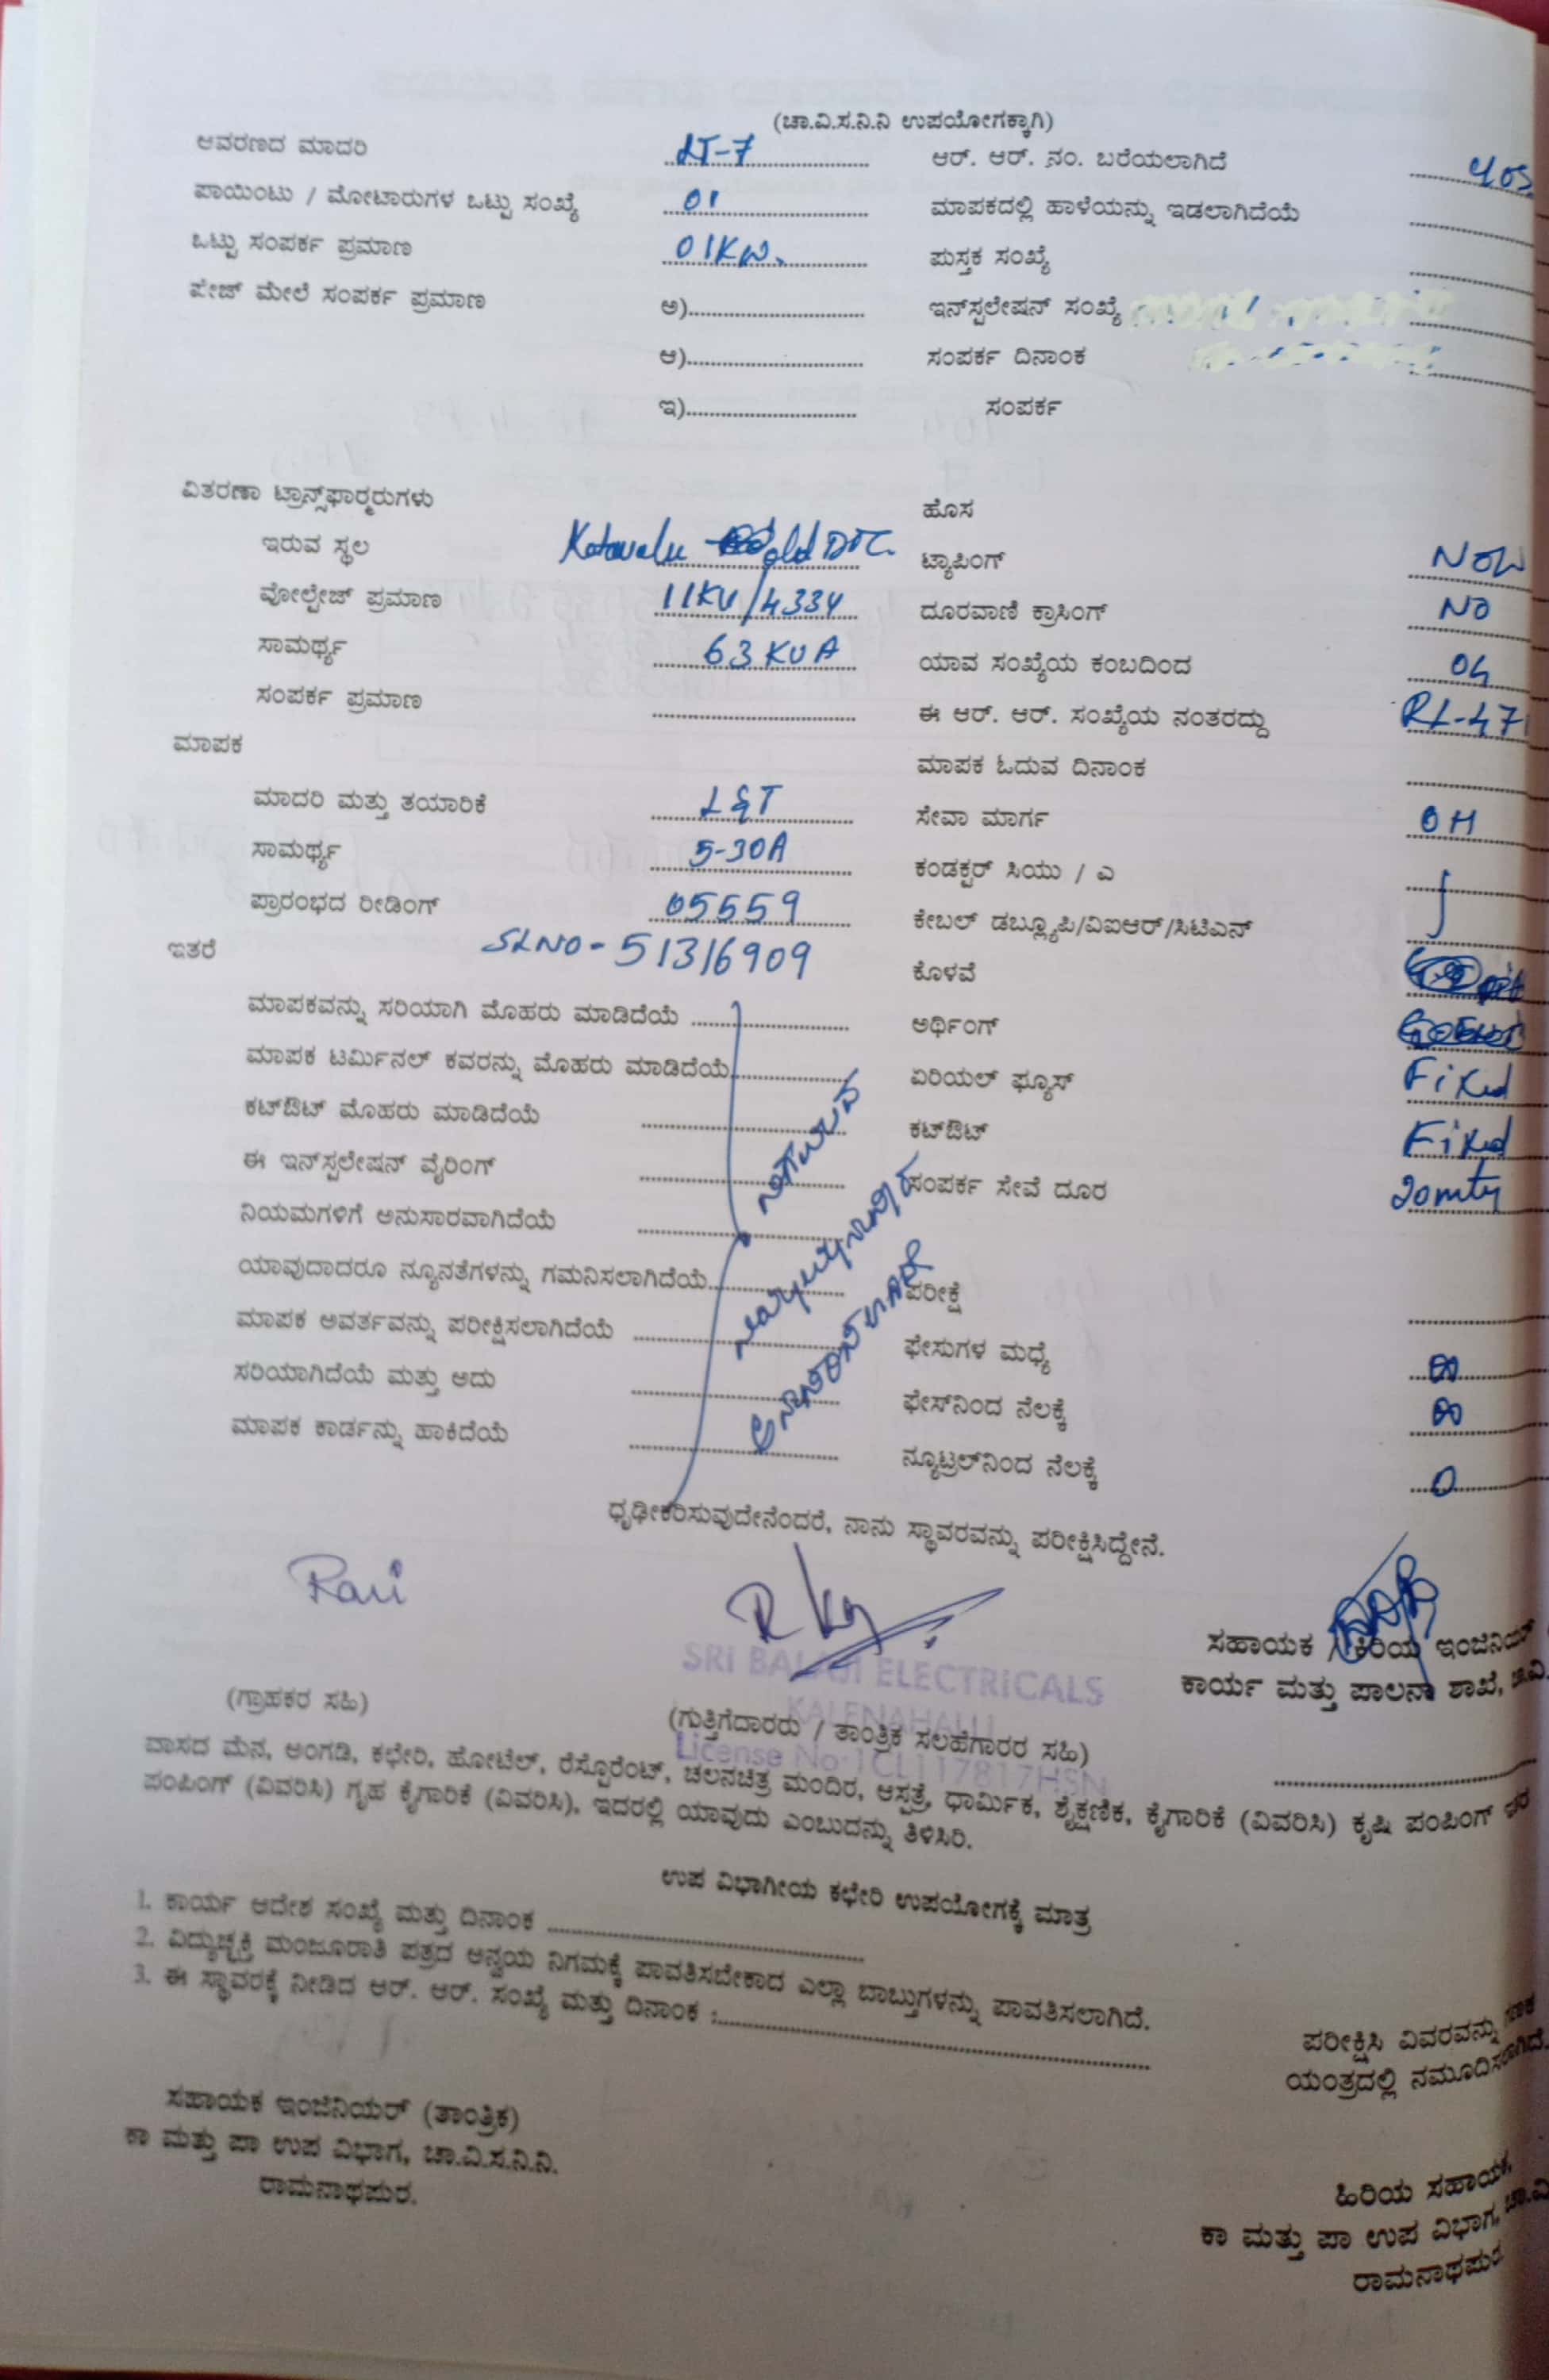 (ಚಾ.ವಿ.ಸ.ನಿ.ನಿ ಉಪಯೋಗಕ್ಕಾಗಿ)
ಆವರಣದ ಮಾದರಿ LT-7 ಆರ್. ಆರ್. ನಂ. ಬರೆಯಲಾಗಿದೆ
ಪಾಯಿಂಟು / ಮೋಟಾರುಗಳ ಒಟ್ಟು ಸಂಖ್ಯೆ 01 ಮಾಪಕದಲ್ಲಿ ಹಾಳೆಯನ್ನು ಇಡಲಾಗಿದೆಯೆ
ಒಟ್ಟು ಸಂಪರ್ಕ ಪ್ರಮಾಣ 01KW. ಪುಸ್ತಕ ಸಂಖ್ಯೆ
ಪೇಜ್ ಮೇಲೆ ಸಂಪರ್ಕ ಪ್ರಮಾಣ ಅ) ಇನ್‌ಸ್ಪಲೇಷನ್ ಸಂಖ್ಯೆ
ಆ) ಸಂಪರ್ಕ ದಿನಾಂಕ
ಇ) ಸಂಪರ್ಕ
ವಿತರಣಾ ಟ್ರಾನ್ಸ್‌ಫಾರ್ಮರುಗಳು ಹೊಸ
ಇರುವ ಸ್ಥಲ Kotavalu old DTC. ಟ್ಯಾಪಿಂಗ್ NOW
ವೋಲ್ಟೇಜ್ ಪ್ರಮಾಣ 11KV/433V ದೂರವಾಣಿ ಕ್ರಾಸಿಂಗ್ NO
ಸಾಮರ್ಥ್ಯ 63KVA ಯಾವ ಸಂಖ್ಯೆಯ ಕಂಬದಿಂದ 04
ಸಂಪರ್ಕ ಪ್ರಮಾಣ ಈ ಆರ್. ಆರ್. ಸಂಖ್ಯೆಯ ನಂತರದ್ದು RL-471
ಮಾಪಕ ಮಾಪಕ ಓದುವ ದಿನಾಂಕ
ಮಾದರಿ ಮತ್ತು ತಯಾರಿಕೆ L&T ಸೇವಾ ಮಾರ್ಗ OH
ಸಾಮರ್ಥ್ಯ 5-30A ಕಂಡಕ್ಟರ್ ಸಿಯು / ಎ
ಪ್ರಾರಂಭದ ರೀಡಿಂಗ್ 05559 ಕೇಬಲ್ ಡಬ್ಲ್ಯೂಪಿ/ವಿಐಆರ್/ಸಿಟಿಎನ್
ಇತರೆ SLNO-51316909 ಕೊಳವೆ
ಮಾಪಕವನ್ನು ಸರಿಯಾಗಿ ಮೊಹರು ಮಾಡಿದೆಯೆ ಅರ್ಥಿಂಗ್
ಮಾಪಕ ಟರ್ಮಿನಲ್ ಕವರನ್ನು ಮೊಹರು ಮಾಡಿದೆಯೆ ಏರಿಯಲ್ ಫ್ಯೂಸ್ Fixed
ಕಟ್‌ಔಟ್ ಮೊಹರು ಮಾಡಿದೆಯೆ ಕಟ್‌ಔಟ್ Fixed
ಈ ಇನ್‌ಸ್ಪಲೇಷನ್ ವೈರಿಂಗ್ ಸಂಪರ್ಕ ಸೇವೆ ದೂರ
ನಿಯಮಗಳಿಗೆ ಅನುಸಾರವಾಗಿದೆಯೆ
ಯಾವುದಾದರೂ ನ್ಯೂನತೆಗಳನ್ನು ಗಮನಿಸಲಾಗಿದೆಯೆ ಪರೀಕ್ಷೆ
ಮಾಪಕ ಅವರ್ತವನ್ನು ಪರೀಕ್ಷಿಸಲಾಗಿದೆಯೆ ಫೇಸುಗಳ ಮಧ್ಯೆ
ಸರಿಯಾಗಿದೆಯೆ ಮತ್ತು ಅದು ಫೇಸ್‌ನಿಂದ ನೆಲಕ್ಕೆ
ಮಾಪಕ ಕಾರ್ಡನ್ನು ಹಾಕಿದೆಯೆ ನ್ಯೂಟ್ರಲ್‌ನಿಂದ ನೆಲಕ್ಕೆ 0
ಧೃಢೀಕರಿಸುವುದೇನೆಂದರೆ, ನಾನು ಸ್ಥಾವರವನ್ನು ಪರೀಕ್ಷಿಸಿದ್ದೇನೆ.
Ravi
SRI BALAJI ELECTRICALS
KALENAHALLI
License No:1CL117817HSN
ಸಹಾಯಕ / ಕಿರಿಯ ಇಂಜಿನಿಯರ್
ಕಾರ್ಯ ಮತ್ತು ಪಾಲನಾ ಶಾಖೆ, ಚಾ.ವಿ.
(ಗ್ರಾಹಕರ ಸಹಿ) (ಗುತ್ತಿಗೆದಾರರು / ತಾಂತ್ರಿಕ ಸಲಹೆಗಾರರ ಸಹಿ)
ವಾಸದ ಮನೆ, ಅಂಗಡಿ, ಕಛೇರಿ, ಹೋಟೆಲ್, ರೆಸ್ಟೊರೆಂಟ್, ಚಲನಚಿತ್ರ ಮಂದಿರ, ಆಸ್ಪತ್ರೆ, ಧಾರ್ಮಿಕ, ಶೈಕ್ಷಣಿಕ, ಕೈಗಾರಿಕೆ (ವಿವರಿಸಿ) ಕೃಷಿ ಪಂಪಿಂಗ್
ಪಂಪಿಂಗ್ (ವಿವರಿಸಿ) ಗೃಹ ಕೈಗಾರಿಕೆ (ವಿವರಿಸಿ), ಇದರಲ್ಲಿ ಯಾವುದು ಎಂಬುದನ್ನು ತಿಳಿಸಿರಿ.
ಉಪ ವಿಭಾಗೀಯ ಕಛೇರಿ ಉಪಯೋಗಕ್ಕೆ ಮಾತ್ರ
1. ಕಾರ್ಯ ಆದೇಶ ಸಂಖ್ಯೆ ಮತ್ತು ದಿನಾಂಕ
2. ವಿದ್ಯುಚ್ಛಕ್ತಿ ಮಂಜೂರಾತಿ ಪತ್ರದ ಅನ್ವಯ ನಿಗಮಕ್ಕೆ ಪಾವತಿಸಬೇಕಾದ ಎಲ್ಲಾ ಬಾಬ್ತುಗಳನ್ನು ಪಾವತಿಸಲಾಗಿದೆ.
3. ಈ ಸ್ಥಾವರಕ್ಕೆ ನೀಡಿದ ಆರ್. ಆರ್. ಸಂಖ್ಯೆ ಮತ್ತು ದಿನಾಂಕ :
ಪರೀಕ್ಷಿಸಿ ವಿವರವನ್ನು ಗಣಕ
ಯಂತ್ರದಲ್ಲಿ ನಮೂದಿಸಲಾಗಿದೆ.
ಸಹಾಯಕ ಇಂಜಿನಿಯರ್ (ತಾಂತ್ರಿಕ)
ಕಾ ಮತ್ತು ಪಾ ಉಪ ವಿಭಾಗ, ಚಾ.ವಿ.ಸ.ನಿ.ನಿ.
ರಾಮನಾಥಪುರ.
ಹಿರಿಯ ಸಹಾಯಕ,
ಕಾ ಮತ್ತು ಪಾ ಉಪ ವಿಭಾಗ, ಚಾ.ವಿ
ರಾಮನಾಥಪುರ